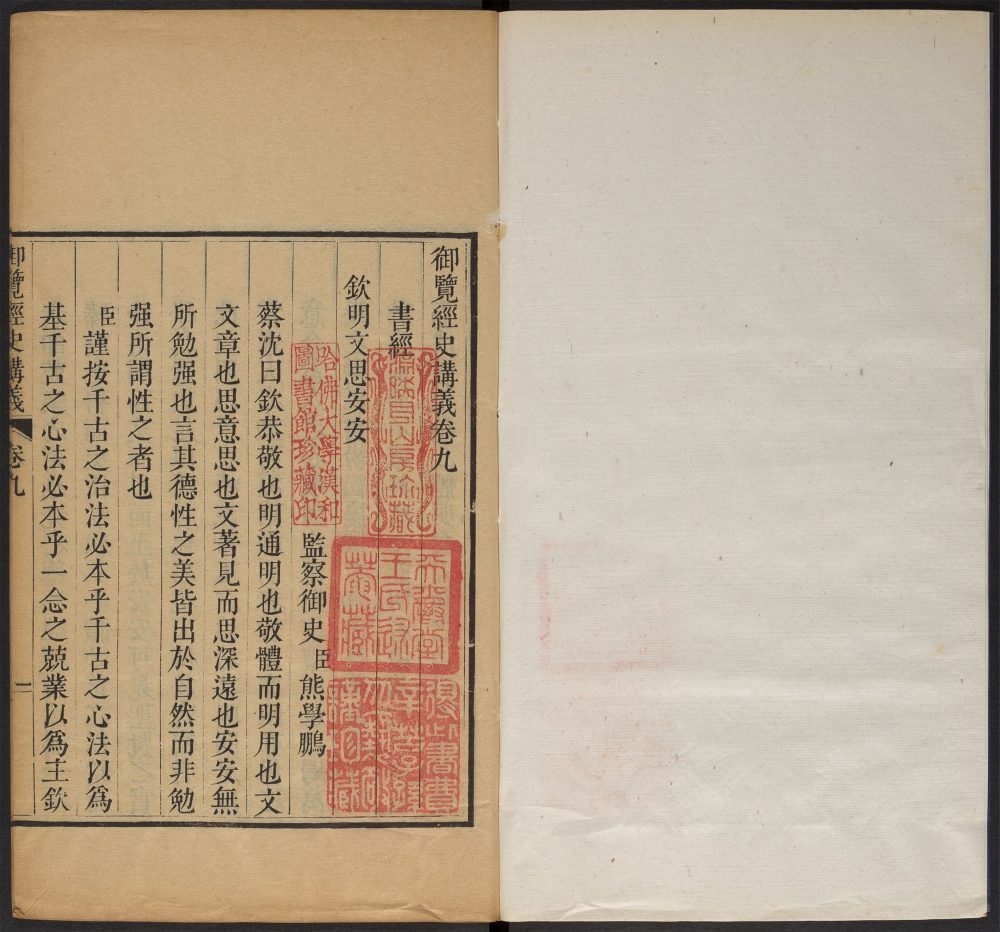 御覽經史講義卷九
書經
欽明文思安安
監察御史臣熊學鵬
蔡沈曰欽恭敬也明通明也敬體而明用也文
文章也思意思也文著見而思深遠也安安無
所勉强也言其德性之美皆出於自然而非勉
强所謂性之者也
臣謹按千古之治法必本乎千古之心法以爲
基千古之心法必本乎一念之兢業以爲主欽
御覽經史講義 卷九 一
哈佛大學漢和
圖書館珍藏印